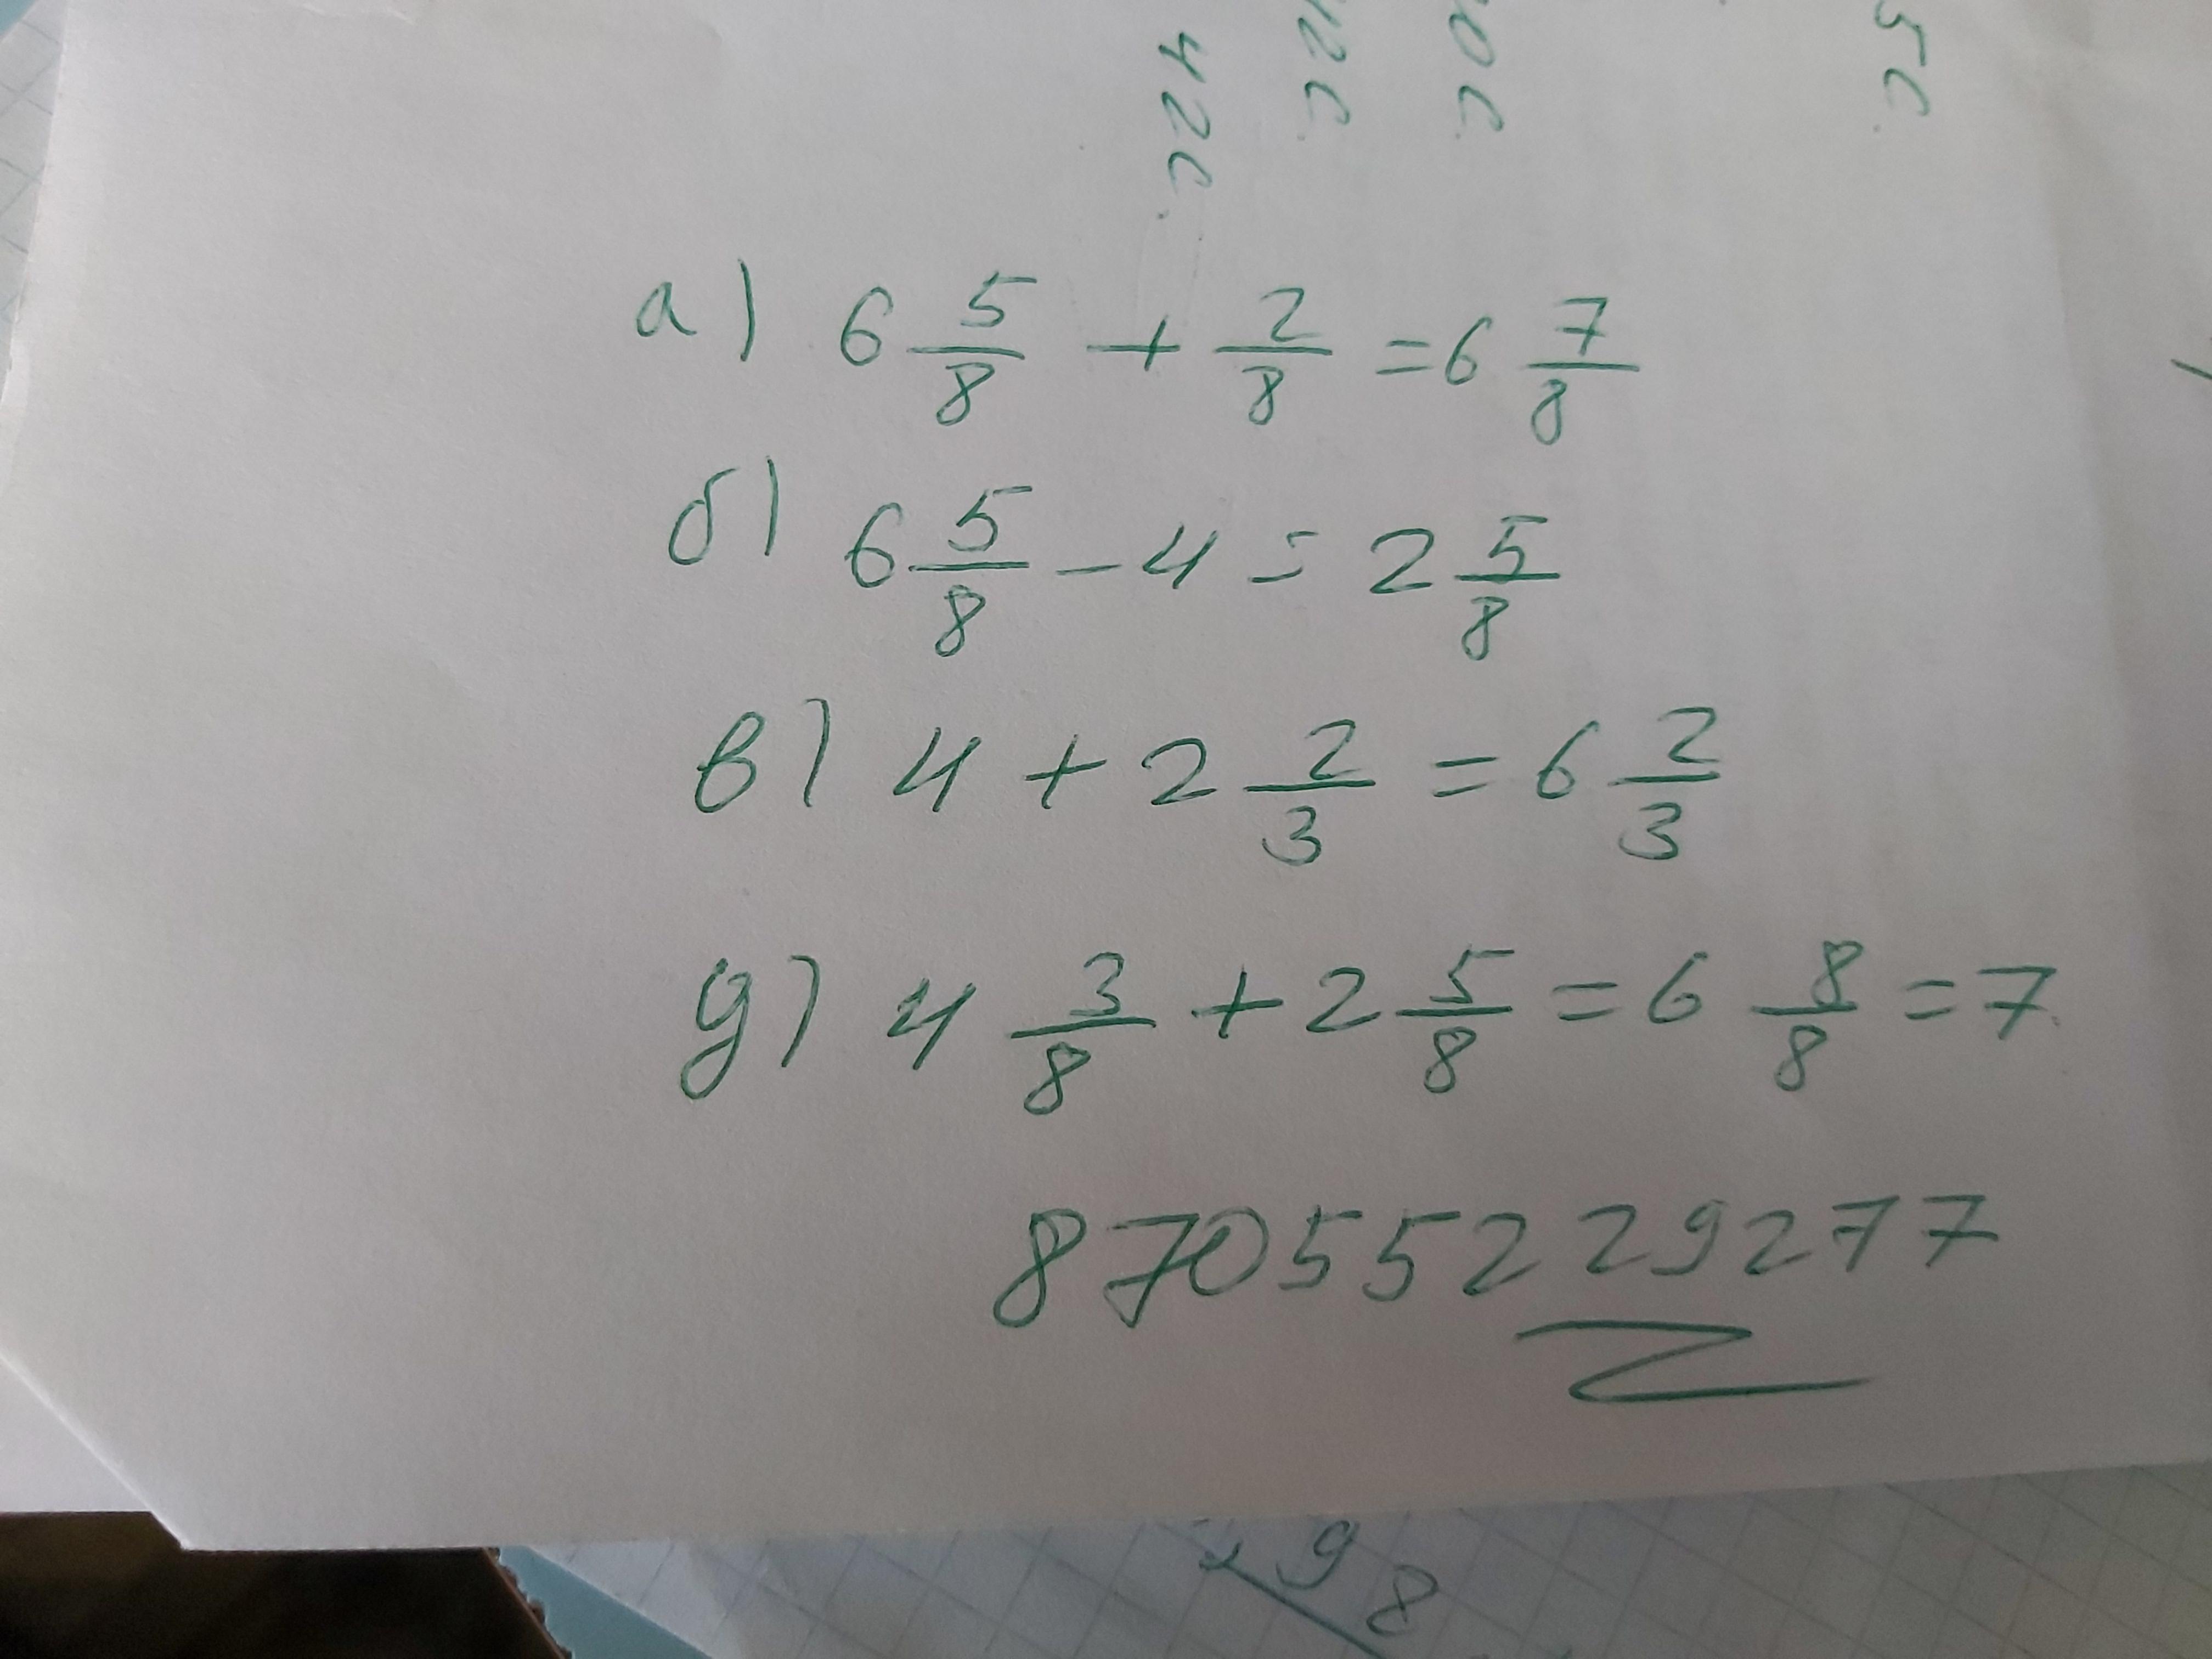 42с.
42с.
0с.
5с.
а) 6 5/8 + 2/8 = 6 7/8
б) 6 5/8 - 4 = 2 5/8
в) 4 + 2 2/3 = 6 2/3
д) 4 3/8 + 2 5/8 = 6 8/8 = 7
87055229277
98